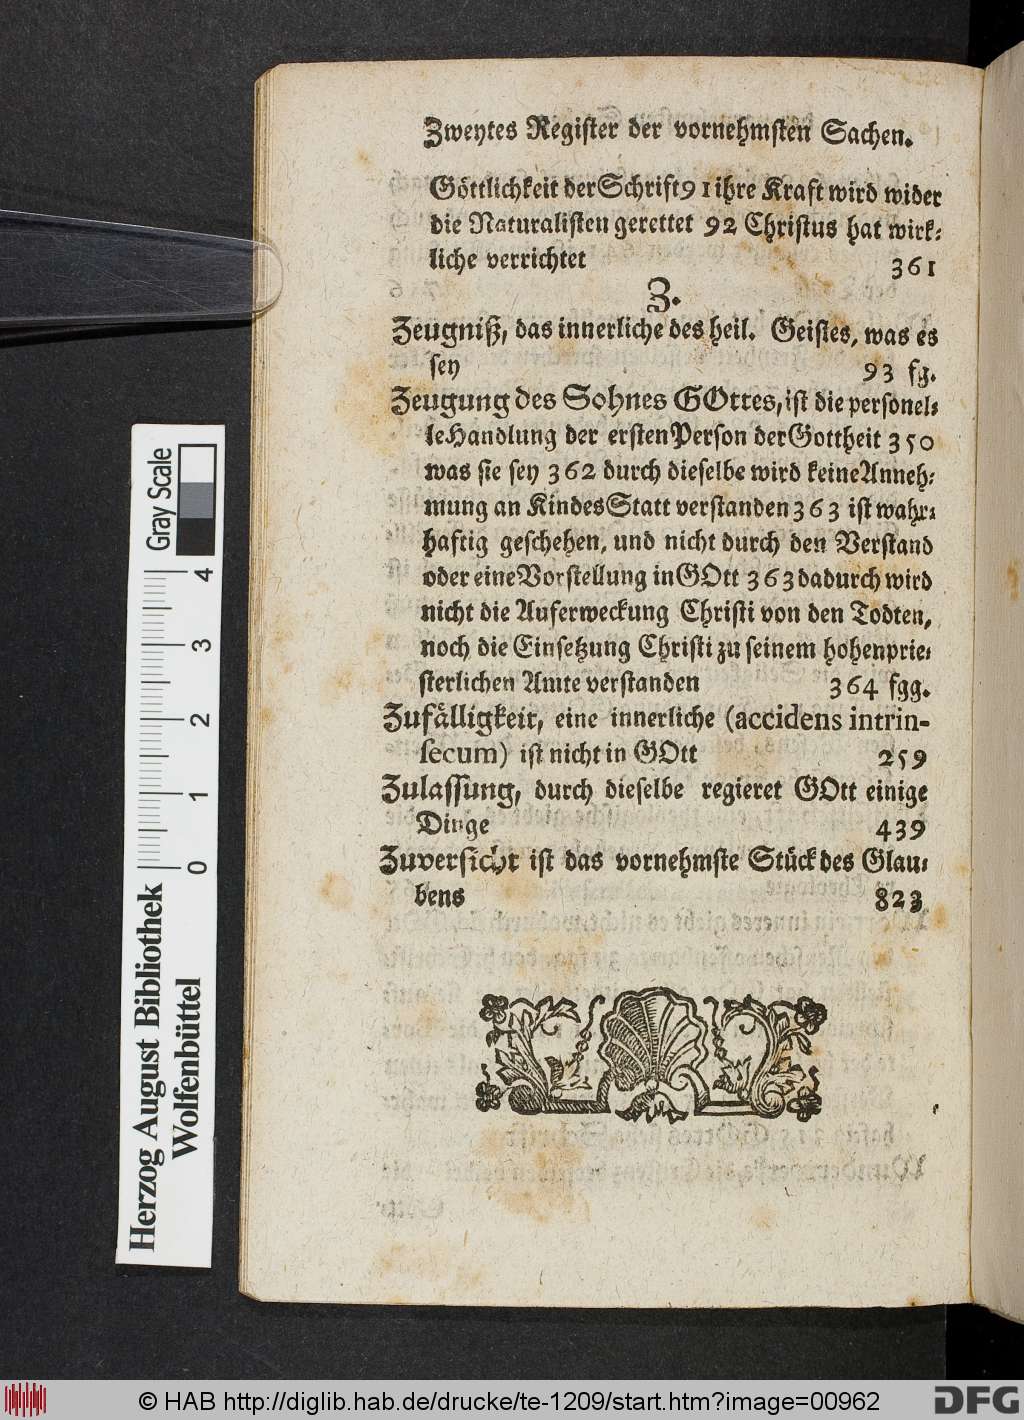 Zweytes Register der vornehmsten Sachen.
Göttlichkeit der Schrift 91 ihre Kraft wird wider
die Naturalisten gerettet 92 Christus hat wirk-
liche verrichtet 361
Z.
Zeugniß, das innerliche des heil. Geistes, was es
sey 93 fg.
Zeugung des Sohnes GOttes, ist die personel-
le Handlung der ersten Person der Gottheit 350
was sie sey 362 durch dieselbe wird keine Anneh-
mung an Kindes Statt verstanden 363 ist wahr-
haftig geschehen, und nicht durch den Verstand
oder eine Vorstellung in GOtt 363 dadurch wird
nicht die Auferweckung Christi von den Todten,
noch die Einsetzung Christi zu seinem hohenprie-
sterlichen Amte verstanden 364 fgg.
Zufälligkeit, eine innerliche (accidens intrin-
secum) ist nicht in GOtt 259
Zulassung, durch dieselbe regieret GOtt einige
Dinge 439
Zuversicht ist das vornehmste Stück des Glau-
bens 823
Herzog August Bibliothek
Wolfenbüttel
Gray Scale
0 1 2 3 4
© HAB http://diglib.hab.de/drucke/te-1209/start.htm?image=00962
DFG